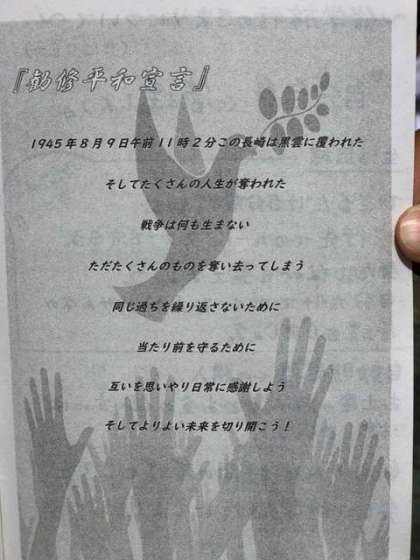 『勧修平和宣言』
1945年8月9日午前11時2分この長崎は黒雲に覆われた
そしてたくさんの人生が奪われた
戦争は何も生まない
ただたくさんのものを奪い去ってしまう
同じ過ちを繰り返さないために
当たり前を守るために
互いを思いやり日常に感謝しよう
そしてよりよい未来を切り開こう！